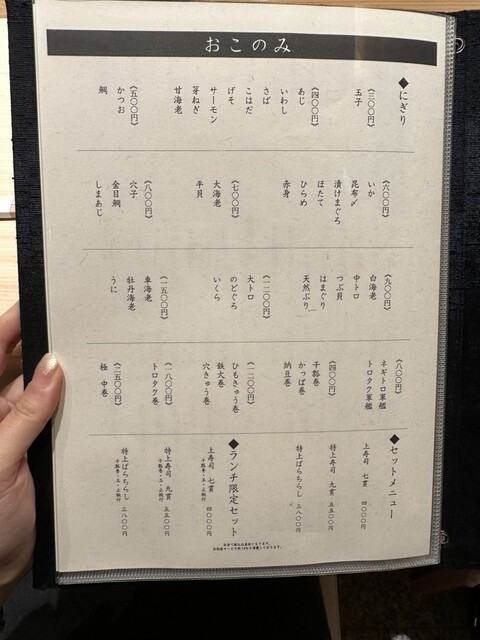 おこのみ
◆にぎり
《三〇〇円》
玉子
《四〇〇円》
あじ
いわし
さば
こはだ
げそ
サーモン
芽ねぎ
甘海老
《五〇〇円》
かつお
鯛
《六〇〇円》
いか
昆布〆
漬けまぐろ
ほたて
ひらめ
赤身
《七〇〇円》
大海老
平貝
《八〇〇円》
穴子
金目鯛
しまあじ
《九〇〇円》
白海老
中トロ
つぶ貝
はまぐり
天然ぶり
《一二〇〇円》
大トロ
のどぐろ
いくら
《一五〇〇円》
車海老
牡丹海老
うに
《八〇〇円》
ネギトロ軍艦
トロタク軍艦
《四〇〇円》
干瓢巻
かっぱ巻
納豆巻
《一二〇〇円》
ひもきゅう巻
鉄火巻
穴きゅう巻
《一八〇〇円》
トロタク巻
《二五〇〇円》
極 中巻
◆セットメニュー
上寿司 七貫 四〇〇〇円
特上寿司 九貫 五五〇〇円
特上ばらちらし 三八〇〇円
◆ランチ限定セット
上寿司 七貫 四〇〇〇円
特上寿司 九貫 五五〇〇円
特上ばらちらし 三八〇〇円